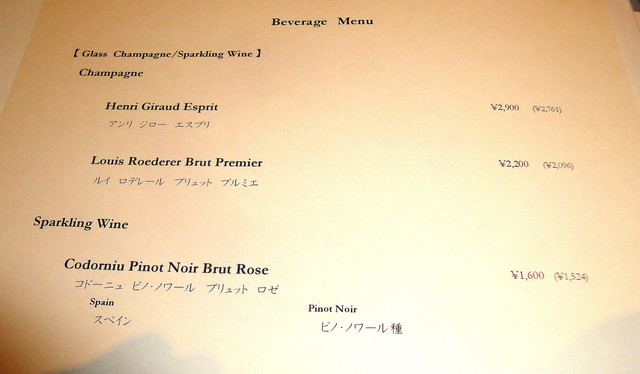 Beverage Menu
【 Glass Champagne/Sparkling Wine 】
Champagne
Henri Giraud Esprit ¥2,900 (¥2,761)
アンリ ジロー エスプリ
Louis Roederer Brut Premier ¥2,200 (¥2,096)
ルイ ロデレール ブリュット プルミエ
Sparkling Wine
Codorniu Pinot Noir Brut Rose ¥1,600 (¥1,524)
コドーニュ ピノ･ノワール ブリュット ロゼ
Spain Pinot Noir
スペイン ピノ･ノワール種